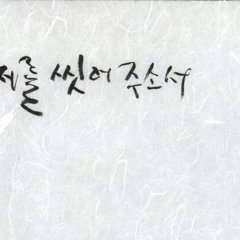 저를 씻어 주소서